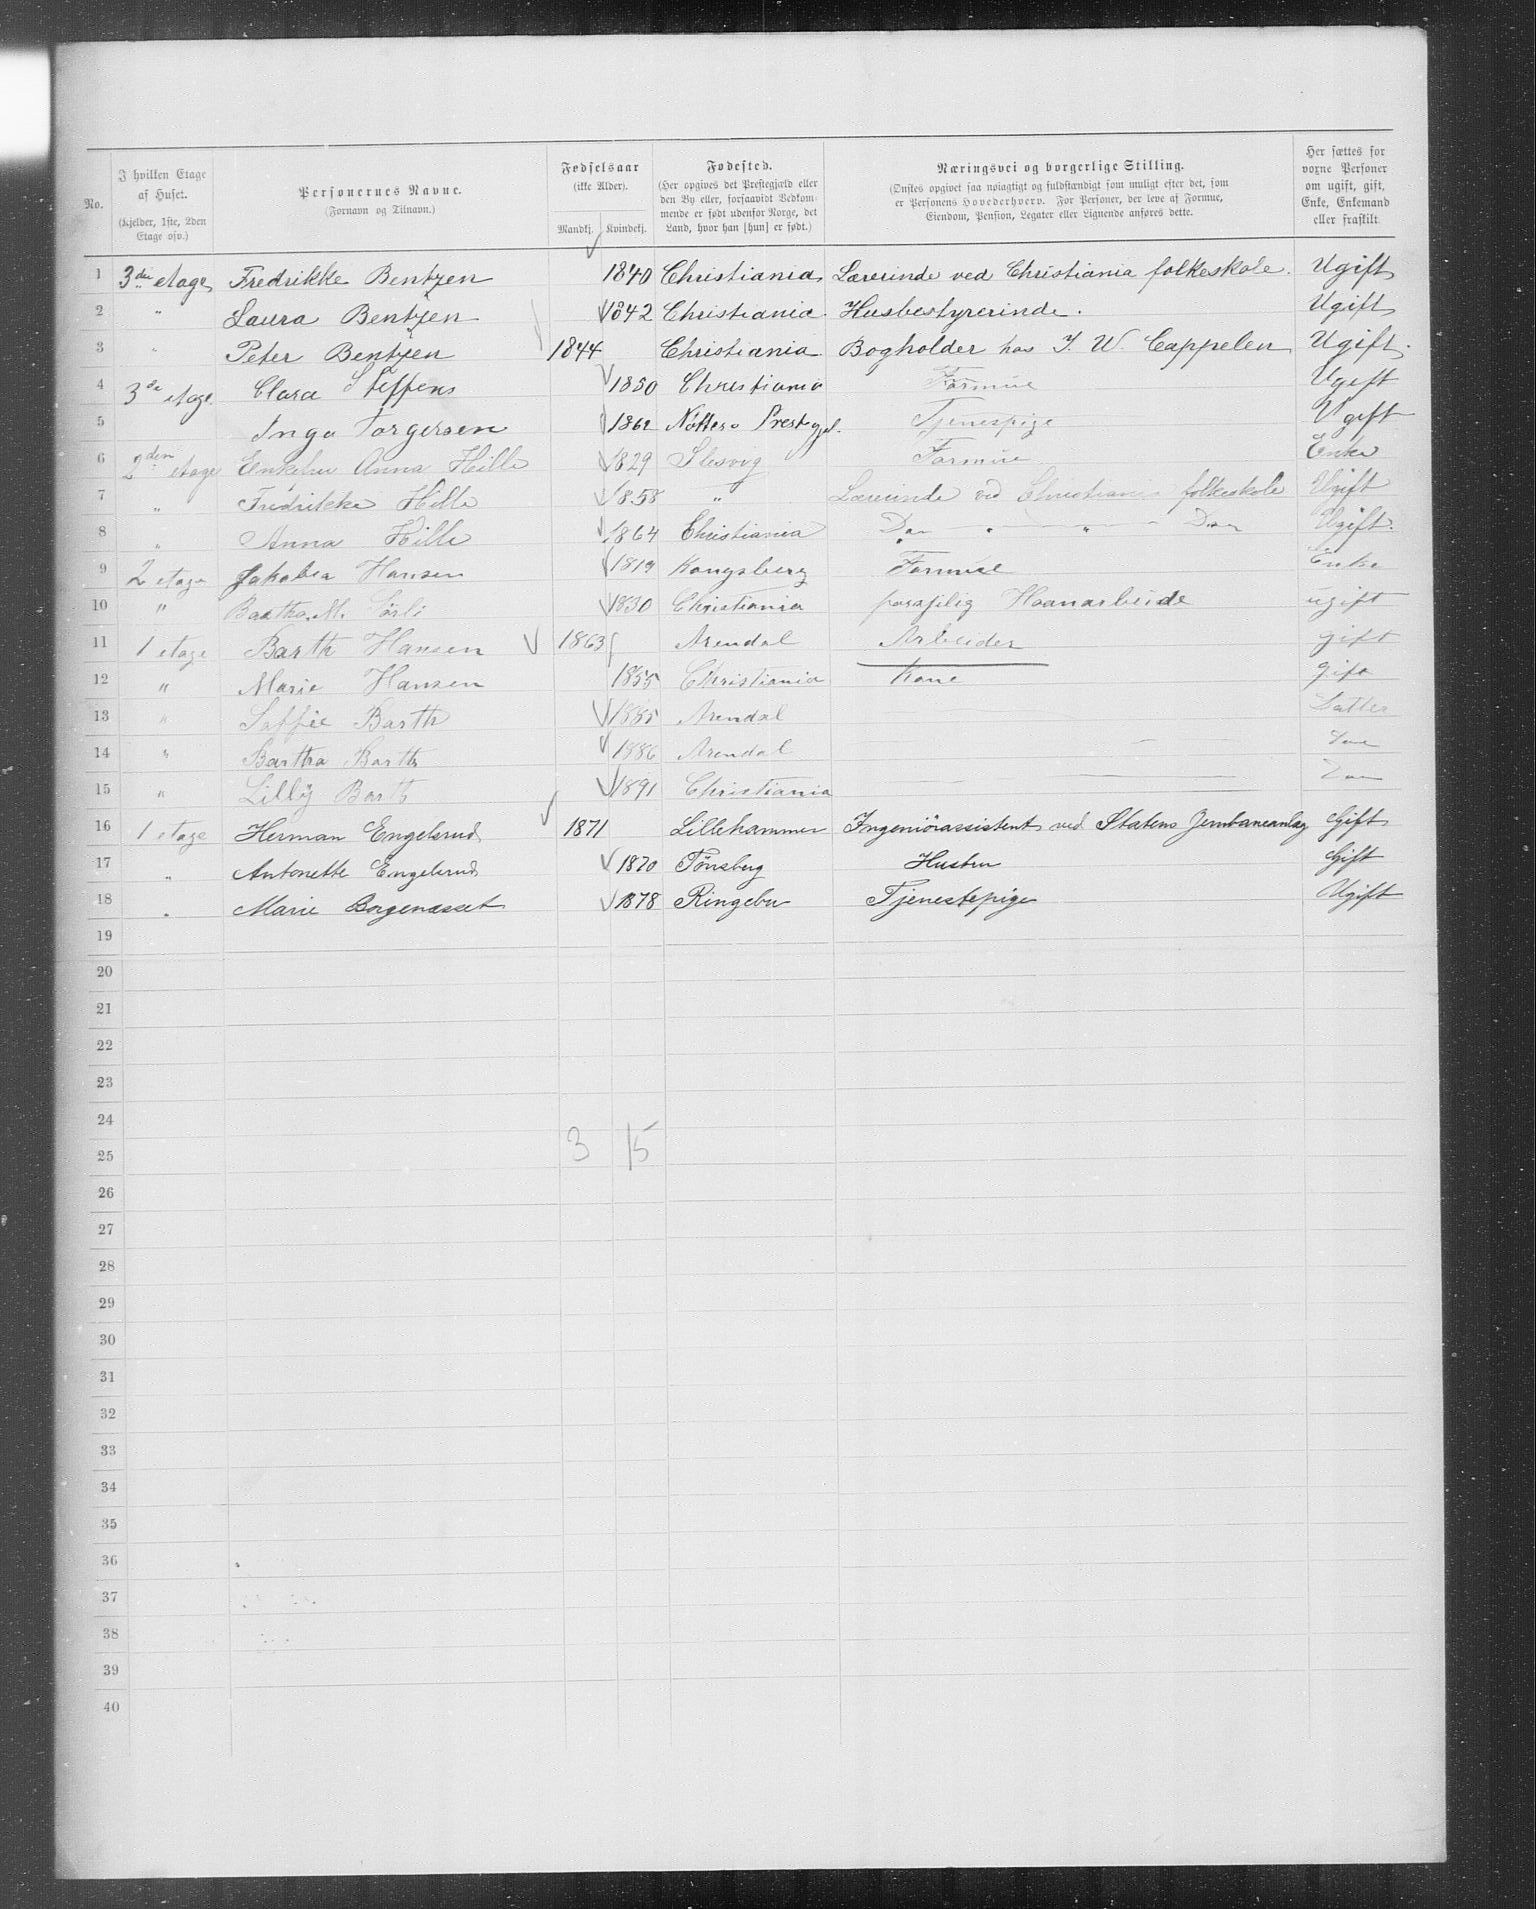 No.
I hvilken Etage af Huset. (Kjelder, 1ste, 2den Etage osv.)
Personernes Navne. (Fornavn og Tilnavn.)
Fødselsaar (ikke Alder).
Mandkj. Kvindekj.
Fødested. (Her opgives det Prestegjæld eller den By eller, forsaavidt Vedkommende er født udenfor Norge, det Land, hvor han [hun] er født.)
Næringsvei og borgerlige Stilling. (Ønskes opgivet saa nøiagtigt og fuldstændigt som muligt efter det, som er Personens Hovederhverv. For Personer, der leve af Formue, Eiendom, Pension, Legater eller Lignende anføres dette.)
Her sættes for voxne Personer om ugift, gift, Enke, Enkemand eller fraskilt.
1 3die etage Fredrikke Bentzen 1840 Christiania Lærerinde ved Christiania folkeskole. Ugift
2 " Laura Bentzen 1842 Christiania Husbestyrerinde. Ugift
3 " Peter Bentzen 1844 Christiania Bogholder hos J. W. Cappelen Ugift.
4 3de etage Clara Steffens 1850 Christiania Formue Ugift
5 Inga Torgersen Nøttero Prestegjel. Tjenespige Ugift
6 2den etage Enkefru Anna Hille 1829 Slesvig Formue Enke
7 " Fredrikke Hille 1858 " Lærerinde ved Christiania folkeskole Ugift
8 " Anna Hille 1864 Christiania Do " " Do Ugift.
9 2 etage Jakobia Hansen 1819 Kongsberg Formue Enke
10 " Bartha. M. Sørli 1830 Christiania Haanarbeide ugift
11 1 etage Barth Hansen 1863 Arendal Arbeider gift
12 " Marie Hansen 1855 Christiania Kone gift
13 " Soffie Barth 1885 Arendal Datter
14 " Bartha Barth 1886 Arendal Do
15 " Lilly Barth 1891 Christiania Do
16 1 etage Herman Engelsrud 1871 Lillehammer Ingeniörassistent ved Statens Jernbaneanlæg Gift
17 " Antonette Engelsrud 1870 Tönsberg Hustru Gift
18 " Marie Borgenasset 1878 Ringebu Tjenestepige Ugift
19
20
21
22
23
24
3 15
25
26
27
28
29
30
31
32
33
34
35
36
37
38
39
40